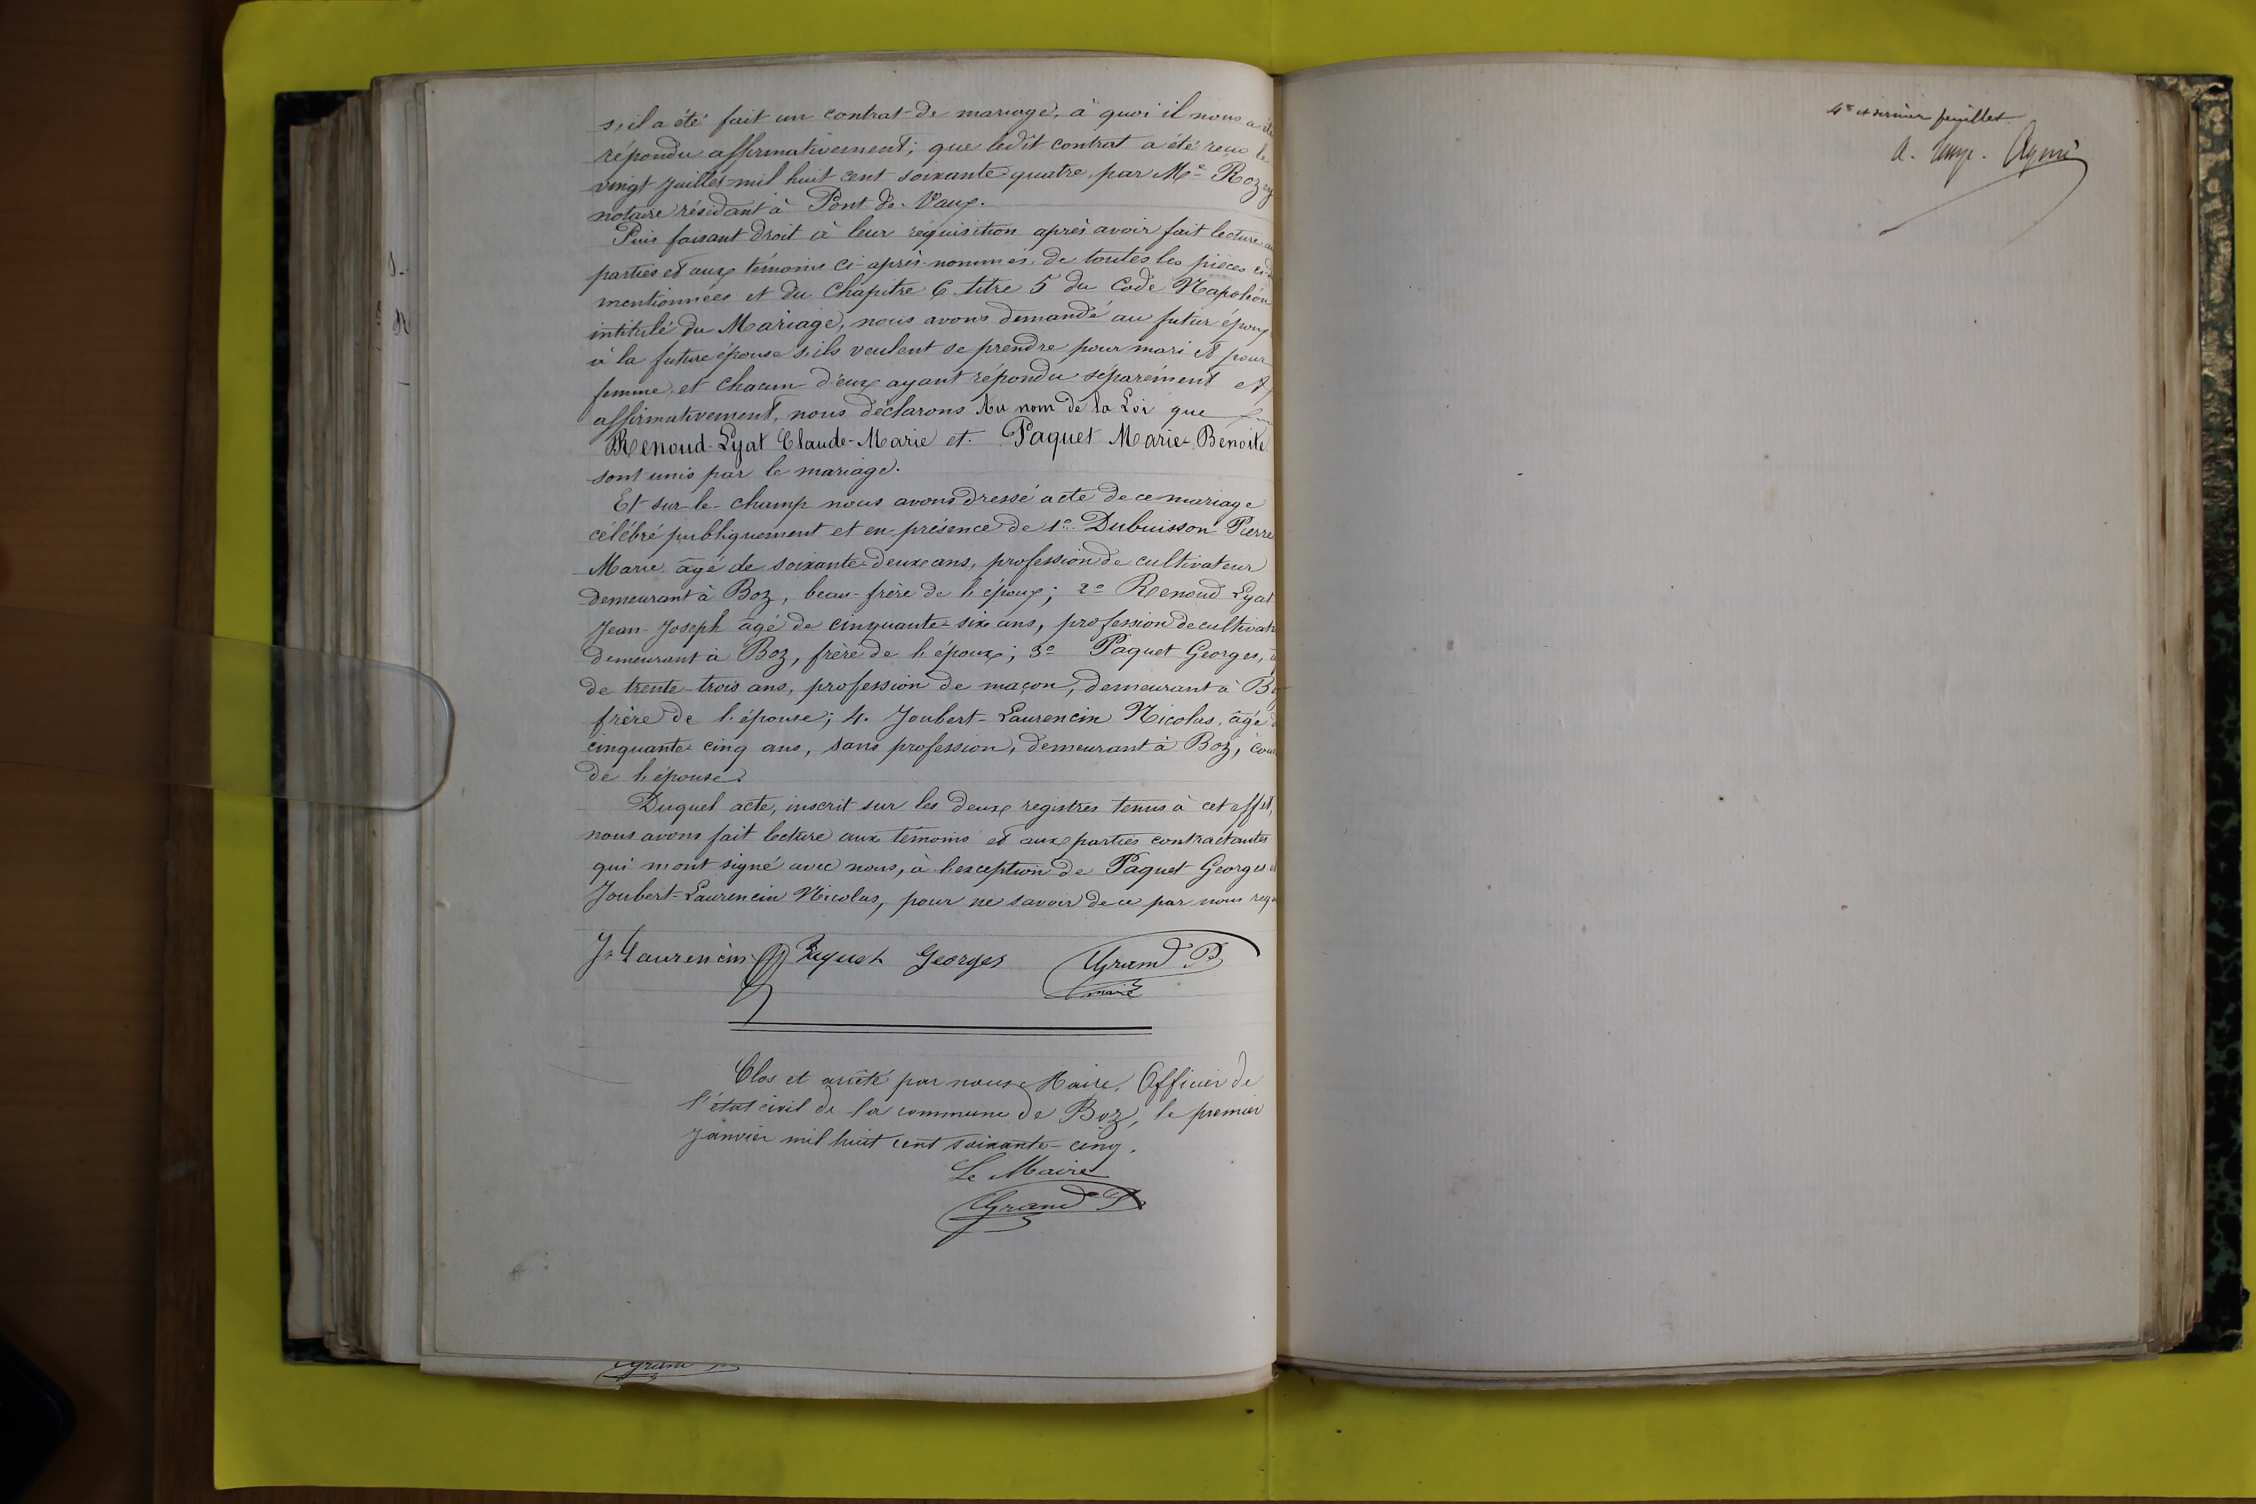 s'il a été fait un contrat de mariage, à quoi il nous a été
répondu affirmativement; que ledit contrat a été reçu le
vingt juillet mil huit cent soixante quatre, par Me Rozey
notaire résidant à Pont de Vaux.
Puis faisant droit à leur réquisition après avoir fait lecture aux
parties et aux témoins ci-après nommés de toutes les pièces ci-d
mentionnées et du Chapitre 6 titre 5 du Code Napoléon
intitulé du Mariage, nous avons demandé au futur époux
à la future épouse s'ils veulent se prendre pour mari et pour
femme et chacun d'eux ayant répondu séparément et
affirmativement, nous déclarons Au nom de la Loi que
Renoud-Lyat Claude-Marie et Paquet Marie-Benoite
sont unis par le mariage.
Et sur-le-champ nous avons dressé acte de ce mariage
célébré publiquement et en présence de 1o Dubuisson Pierre
Marie âgé de soixante-deux ans, profession de cultivateur
demeurant à Boz, beau-frère de l'époux; 2o Renoud Lyat
Jean-Joseph âgé de cinquante-six ans, profession de cultivat
demeurant à Boz, frère de l'époux; 3o Paquet Georges,
de trente-trois ans, profession de maçon, demeurant à Bo
frère de l'épouse; 4. Joubert-Laurencin Nicolas, âgé d
cinquante-cinq ans, sans profession, demeurant à Boz, cou
de l'épouse.
Duquel acte, inscrit sur les deux registres tenus à cet effet,
nous avons fait lecture aux témoins et aux parties contractantes
qui m'ont signé avec nous, à l'exception de Paquet Georges et
Joubert-Laurencin Nicolas, pour ne savoir de ce par nous req
J. Laurencin Paquet Georges Grand B
maire
Clos et arrêté par nous Maire, Officier de
l'état civil de la commune de Boz, le premier
Janvier mil huit cent soixante-cinq.
Le Maire
Grand B
Grand
4e et dernier feuillet